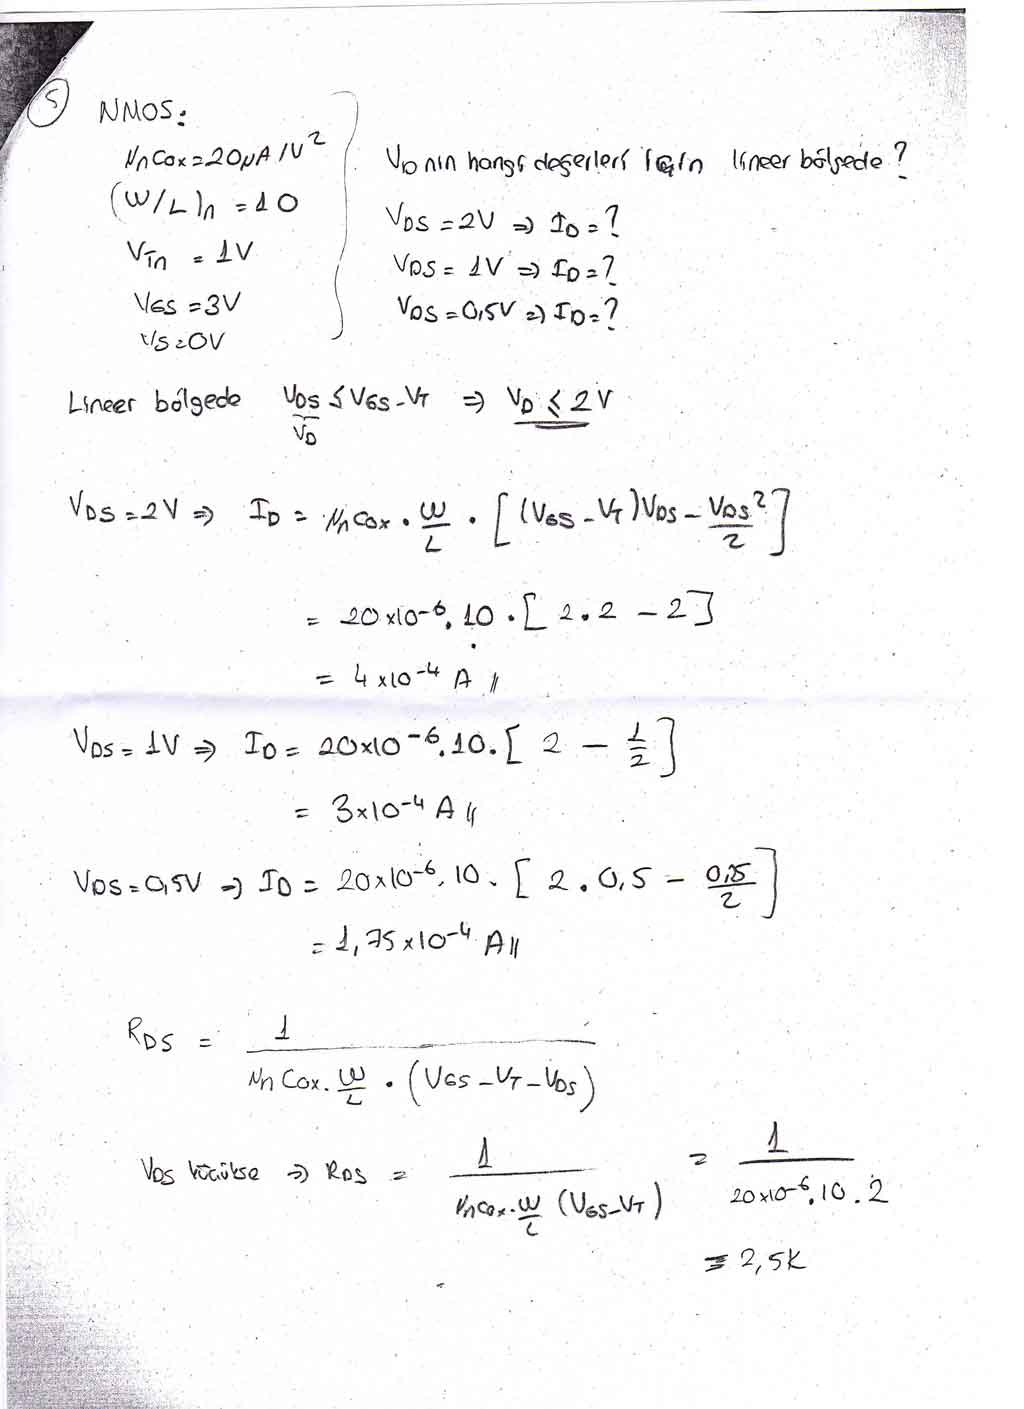 5
NMOS:
μnCox = 20μA/V²
(W/L)n = 10
VTn = 1V
VGS = 3V
VS = 0V
VD nin hangi değerleri için lineer bölgede ?
VDS = 2V ⇒ ID = ?
VDS = 1V ⇒ ID = ?
VDS = 0,5V ⇒ ID = ?
Lineer bölgede VDS ≤ VGS - VT ⇒ VD ≤ 2V
VD
VDS = 2V ⇒ ID = μnCox . W/L . [(VGS - VT)VDS - VDS²/2]
= 20x10⁻⁶. 10 . [2.2 - 2]
= 4x10⁻⁴ A //
VDS = 1V ⇒ ID = 20x10⁻⁶.10. [2 - 1/2]
= 3x10⁻⁴ A //
VDS = 0,5V ⇒ ID = 20x10⁻⁶. 10. [2 . 0,5 - 0,25/2]
= 1,75x10⁻⁴ A //
RDS = 1 / μnCox. W/L . (VGS - VT - VDS)
VDS küçükse ⇒ RDS = 1 / μnCox. W/L (VGS - VT) = 1 / 20x10⁻⁶. 10 . 2
= 2,5K